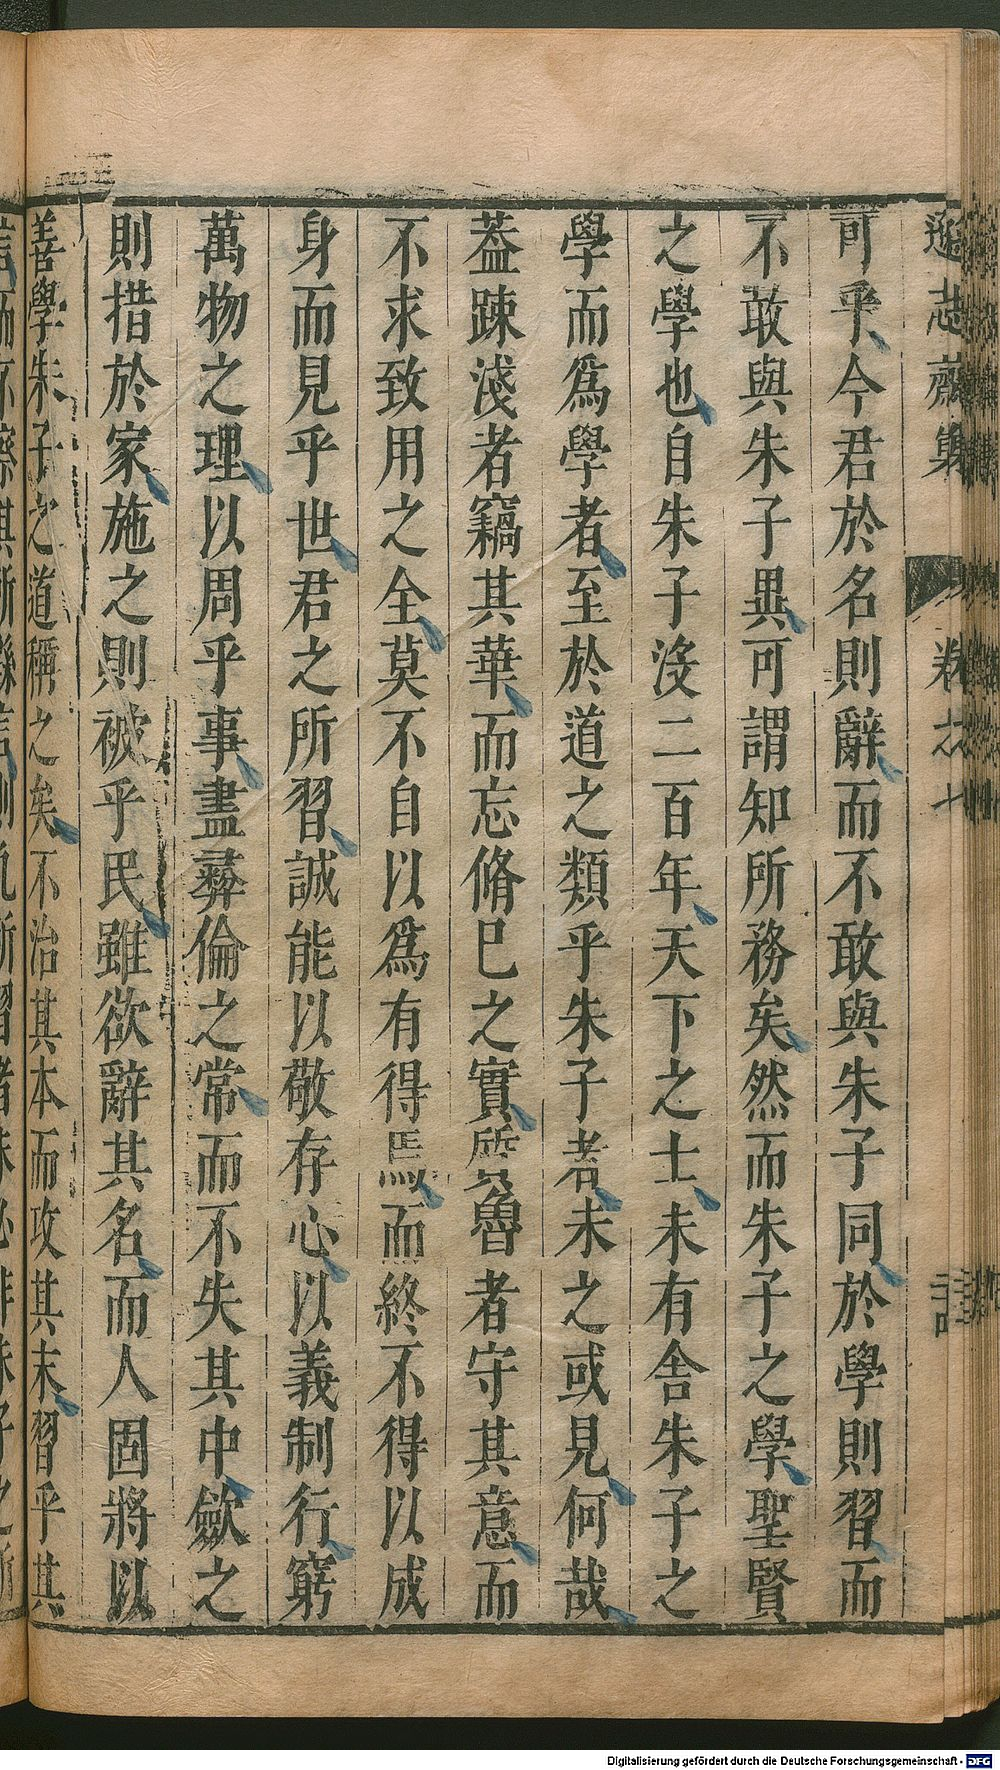 遜志齋集
卷之十
可乎今君於名則辭而不敢與朱子同於學則習而
不敢與朱子異可謂知所務矣然而朱子之學聖賢
之學也自朱子沒二百年天下之士未有舍朱子之
學而爲學者至於道之類乎朱子者未之或見何哉
葢踈淺者竊其華而忘脩巳之實質魯者守其意而
不求致用之全莫不自以爲有得焉而終不得以成
身而見乎世君之所習誠能以敬存心以義制行窮
萬物之理以周乎事盡彝倫之常而不失其中歛之
則措於家施之則被乎民雖欲辭其名而人固將以
善學朱子之道稱之矣不治其本而攻其末習乎其
Digitalisierung gefördert durch die Deutsche Forschungsgemeinschaft - DFG